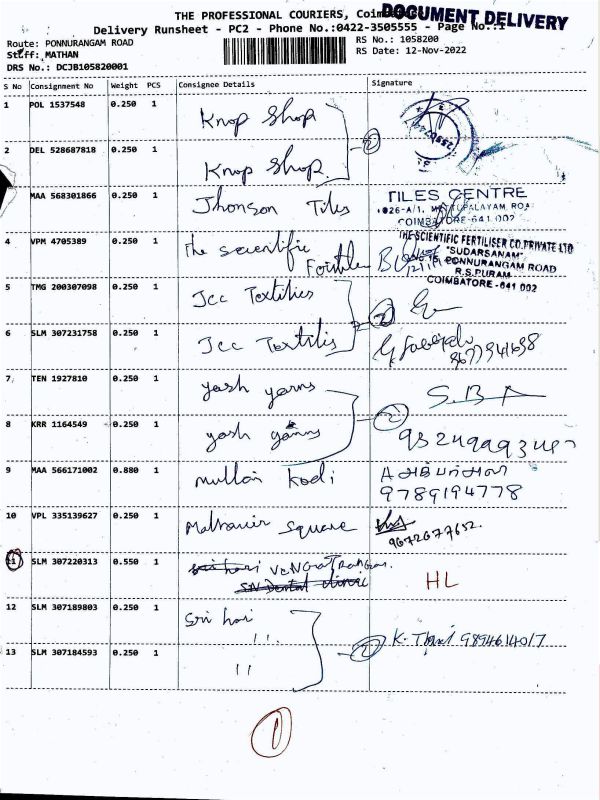 THE PROFESSIONAL COURIERS,
DOCUMENT DELIVERY
Delivery Runsheet - PC2 - Phone No.:0422-3505555 - Page No.:1
Route: PONNURANGAM ROAD
RS No.: 1058200
Staff: MATHAN
RS Date: 12-Nov-2022
DRS No.: DCJB105820001
S No Consignment No Weight PCS Consignee Details Signature
1 POL 1537548 0.250 1 Knop Shop
2 DEL 528687818 0.250 1 Knop Shop
2
MAA 568301866 0.250 1 Jhonson Tiles
TILES CENTRE
COIMBATORE-641 002
4 VPM 4705389 0.250 1 The scientific
THE SCIENTIFIC FERTILISER CO.PRIVATE LTD
"SUDARSANAM"
PONNURANGAM ROAD
R.S.PURAM,
COIMBATORE-641 002
5 TMG 200307098 0.250 1 Jcc Textiles
2
6 SLM 307231758 0.250 1 Jcc Textiles
7 TEN 1927810 0.250 1 yash yarns
S.B.A
2
8 KRR 1164549 0.250 1 yash yarns
9 MAA 566171002 0.880 1 mullai kodi
9789194778
10 VPL 335139627 0.250 1 Square
11 SLM 307220313 0.550 1
SN Dental clinic
HL
12 SLM 307189803 0.250 1 Sri hari
11
2 K. 9894614017
13 SLM 307184593 0.250 1 11
1